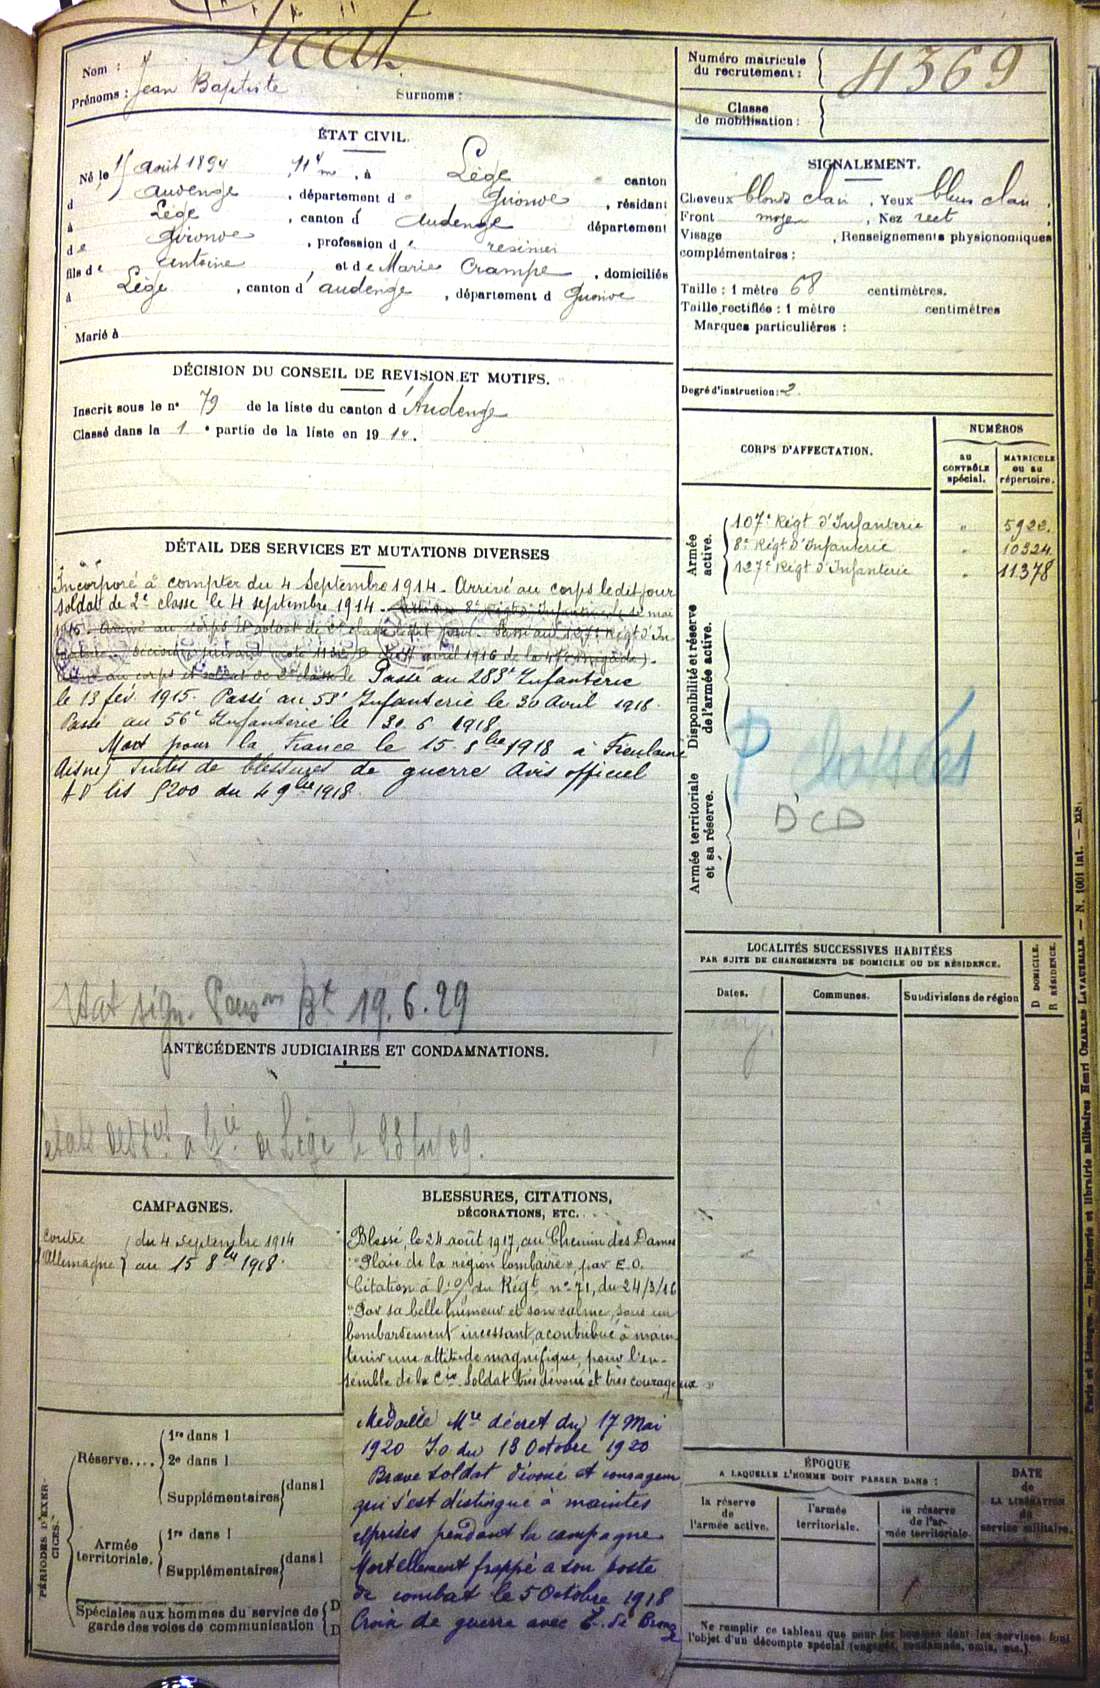 Nom :
Prénoms : Jean Baptiste Surnoms :
Numéro matricule du recrutement : 4369
Classe de mobilisation :
ÉTAT CIVIL.
Né le août 1894, à Lège canton
d Audenge, département de Gironde, résidant
à Lège, canton d Audenge département
de Gironde, profession de résinier
fils de Antoine, et de Marie Crampe, domiciliés
à Lège, canton d'audenge, département d Gironde
Marié à
SIGNALEMENT.
Cheveux blonds clair, Yeux bleus clair,
Front moyen, Nez rect
Visage , Renseignements physionomiques
complémentaires :
Taille : 1 mètre 68 centimètres.
Taille rectifiée : 1 mètre centimètres
Marques particulières :
Degré d'instruction : 2
DÉCISION DU CONSEIL DE REVISION ET MOTIFS.
Inscrit sous le n° 79 de la liste du canton d'Audenge
Classé dans la 1e partie de la liste en 1914.
CORPS D'AFFECTATION.
NUMÉROS
au CONTRÔLE spécial.
MATRICULE ou au répertoire.
Armée active.
107e Régt d'Infanterie " 5922.
8e Régt d'Infanterie " 10324
127e Régt d'Infanterie " 11378
Disponibilité et réserve de l'armée active.
Armée territoriale et sa réserve.
DCD
DÉTAIL DES SERVICES ET MUTATIONS DIVERSES
Incorporé à compter du 4 Septembre 1914. Arrivé au corps ledit jour
soldat de 2e classe le 4 septembre 1914.
Passé au 283e Infanterie
le 13 fév 1915. Passé au 53e Infanterie le 30 Avril 1918.
Passé au 56e Infanterie le 30 6 1918
Mort pour la France le 15 8bre 1918 à
Aisne) Suites de blessures de guerre Avis officiel
du 4 9bre 1918.
19.6.29
ANTÉCÉDENTS JUDICIAIRES ET CONDAMNATIONS.
de Lège le
LOCALITÉS SUCCESSIVES HABITÉES
PAR SUITE DE CHANGEMENTS DE DOMICILE OU DE RÉSIDENCE.
Dates.
Communes.
Subdivisions de région
D DOMICILE.
R RÉSIDENCE.
CAMPAGNES.
Contre l'Allemagne du 4 septembre 1914
au 15 8bre 1918.
BLESSURES, CITATIONS,
DÉCORATIONS, ETC.
Blessé, le 24 août 1917, au Chemin des Dames
"Plaie de la région lombaire", par E.O.
Citation à l'O/ du Régt n° 71, du 24/3/16
"Par sa belle humeur et son calme, sous un
bombardement incessant, a contribué à main
tenir une attitude magnifique, pour l'en-
semble de la Cie. Soldat très dévoué et très courageux"
Médaille Mre décret du 17 Mai
1920 J.O du 13 Octobre 1920
Brave soldat dévoué et courageux
qui s'est distingué à maintes
reprises pendant la campagne
Mortellement frappé à son poste
de combat le 5 Octobre 1918
Croix de guerre avec E. de Bronze
PÉRIODES D'EXERCICES.
Réserve....
1re dans l
2e dans l
Supplémentaires dans l
Armée territoriale.
1re dans l
Supplémentaires dans l
Spéciales aux hommes du service de garde des voies de communication
D
D
ÉPOQUE
A LAQUELLE L'HOMME DOIT PASSER DANS :
la réserve de l'armée active.
l'armée territoriale.
la réserve de l'armée territoriale.
DATE de LA LIBÉRATION du service militaire.
Ne remplir ce tableau que pour les hommes dont les services font
l'objet d'un décompte spécial (engagés, condamnés, omis, etc.).
Paris et Limoges. — Imprimerie et librairie militaires Henri CHARLES-LAVAUZELLE. — N. 1001 int. —